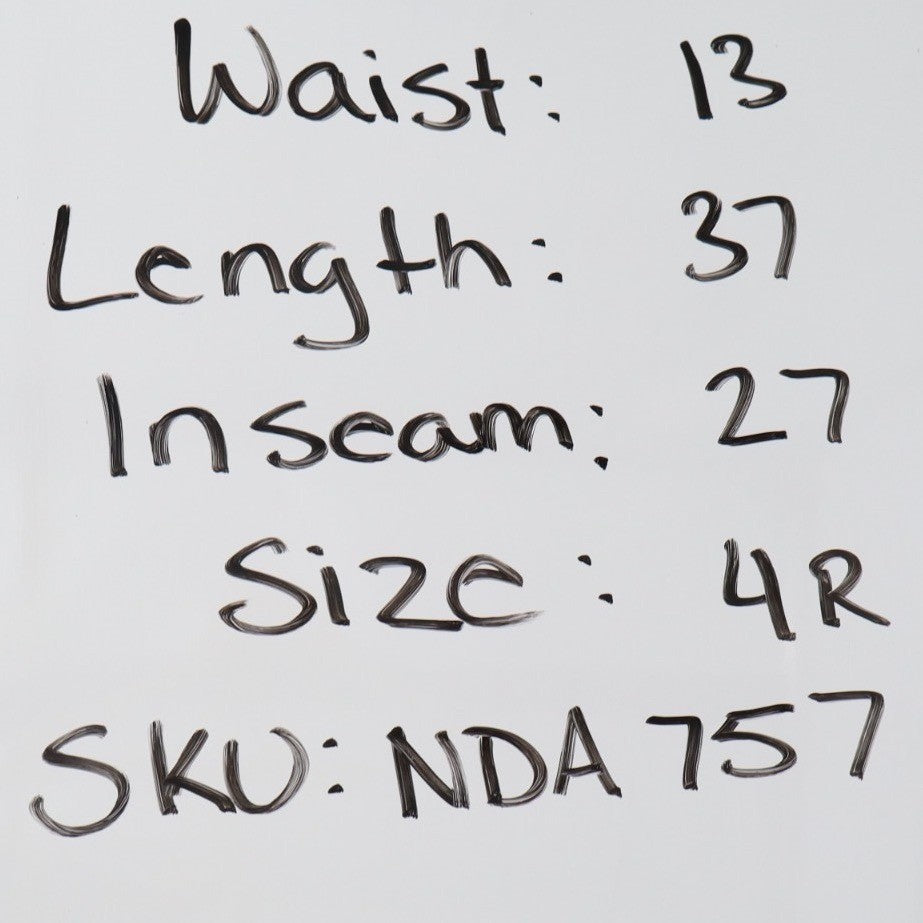 Waist: 13
Length: 37
Inseam: 27
Size: 4R
SKU: NDA 757